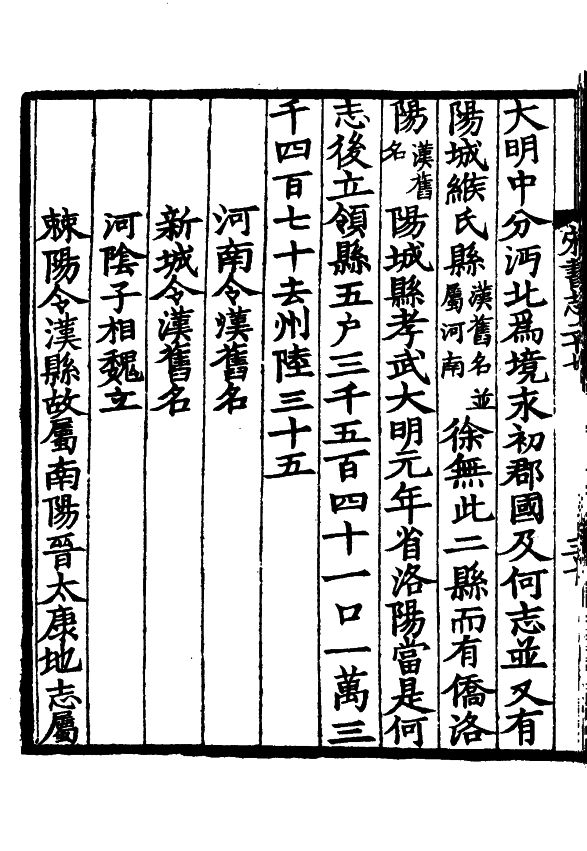 大明中分沔北爲境永初郡國及何志並又有
陽城緱氏縣漢舊名並屬河南徐無此二縣而有僑洛
陽漢舊名陽城縣孝武大明元年省洛陽當是何
志後立領縣五户三千五百四十一口一萬三
千四百七十去州陸三十五
河南令漢舊名
新城令漢舊名
河陰子相魏立
棘陽令漢縣故屬南陽晉太康地志屬